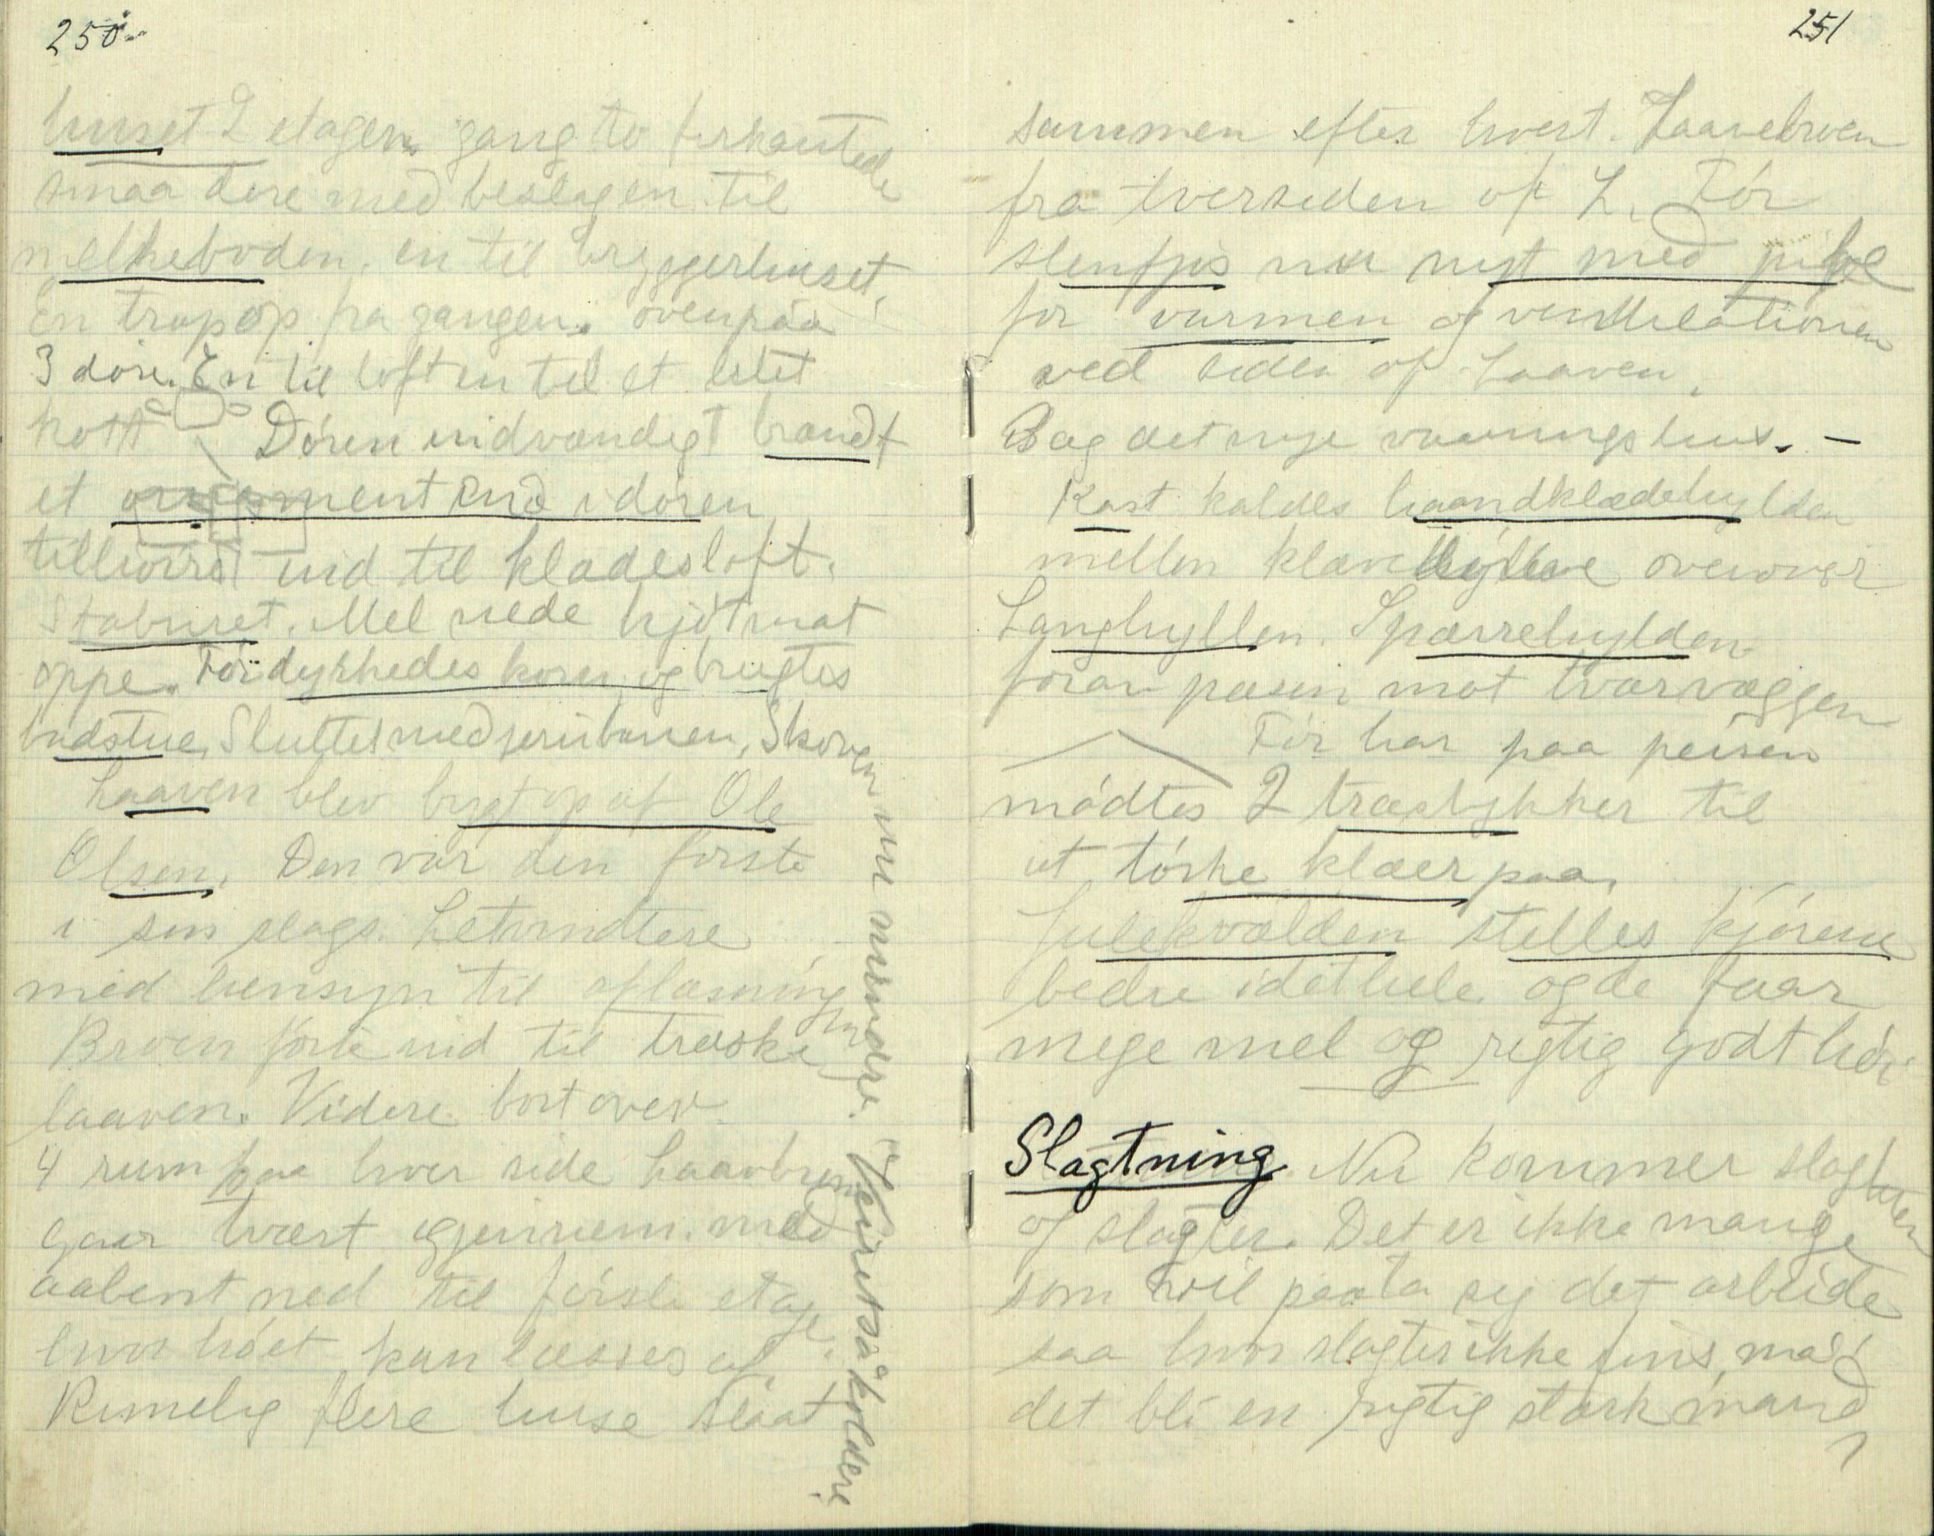 250
huset 2 etager. gang to firkantede
smaa döre med beslagen til
melkeboden. en til bryggerhuset.
En trap op fra gangen. ovenpaa
3 döre. En til loft en til et litet
kott Dören indvændigt brændt
et ornament ind i dören
tilhöire ind til klædesloft.
Stabuset. Mel nede kjötmat
oppe. För dyrkhedes korn og brugtes
badstue, Sluttet med jernbanen, Skoven nu mindre. Veiret saa koldere
Laaven blev bygt op af Ole
Olsen. Den var den förste
i sin slags. Letvindtere
med hensyn til aflæsningen
Broen förte ind til træske
laaven. Videre bortover
4 rum paa hver side Laavbroen
gaar tvært igjennem. med
aabent ned til förste etage.
hvor höet kan læsses af.
Rimelig flere huse slaat
251
sammen efter hvert. Laavebroen
fra tversiden af L.För
slenfjös nu nyt med pibe
for varmen og ventilationen
ved siden af Laaven.
Bag det nye vaaningshus. –
Kost kaldes haandklædehylden
mellen overover
Langhyllen. Sparrehylden
foran peisen mot tværvæggen
För har paa peisen
mödtes 2 træstykker til
at törke klæer paa.
Julekvælden stelles kjörene
bedre idethele og de faar
mege mel og rigtig godt höi
Slagtning. Nu kommer slagteren
og slagter. Det er ikke mange
som vil paata sig det arbeide
saa hvor slagter ikke fins, maa
det bli en rigtig stærk mand